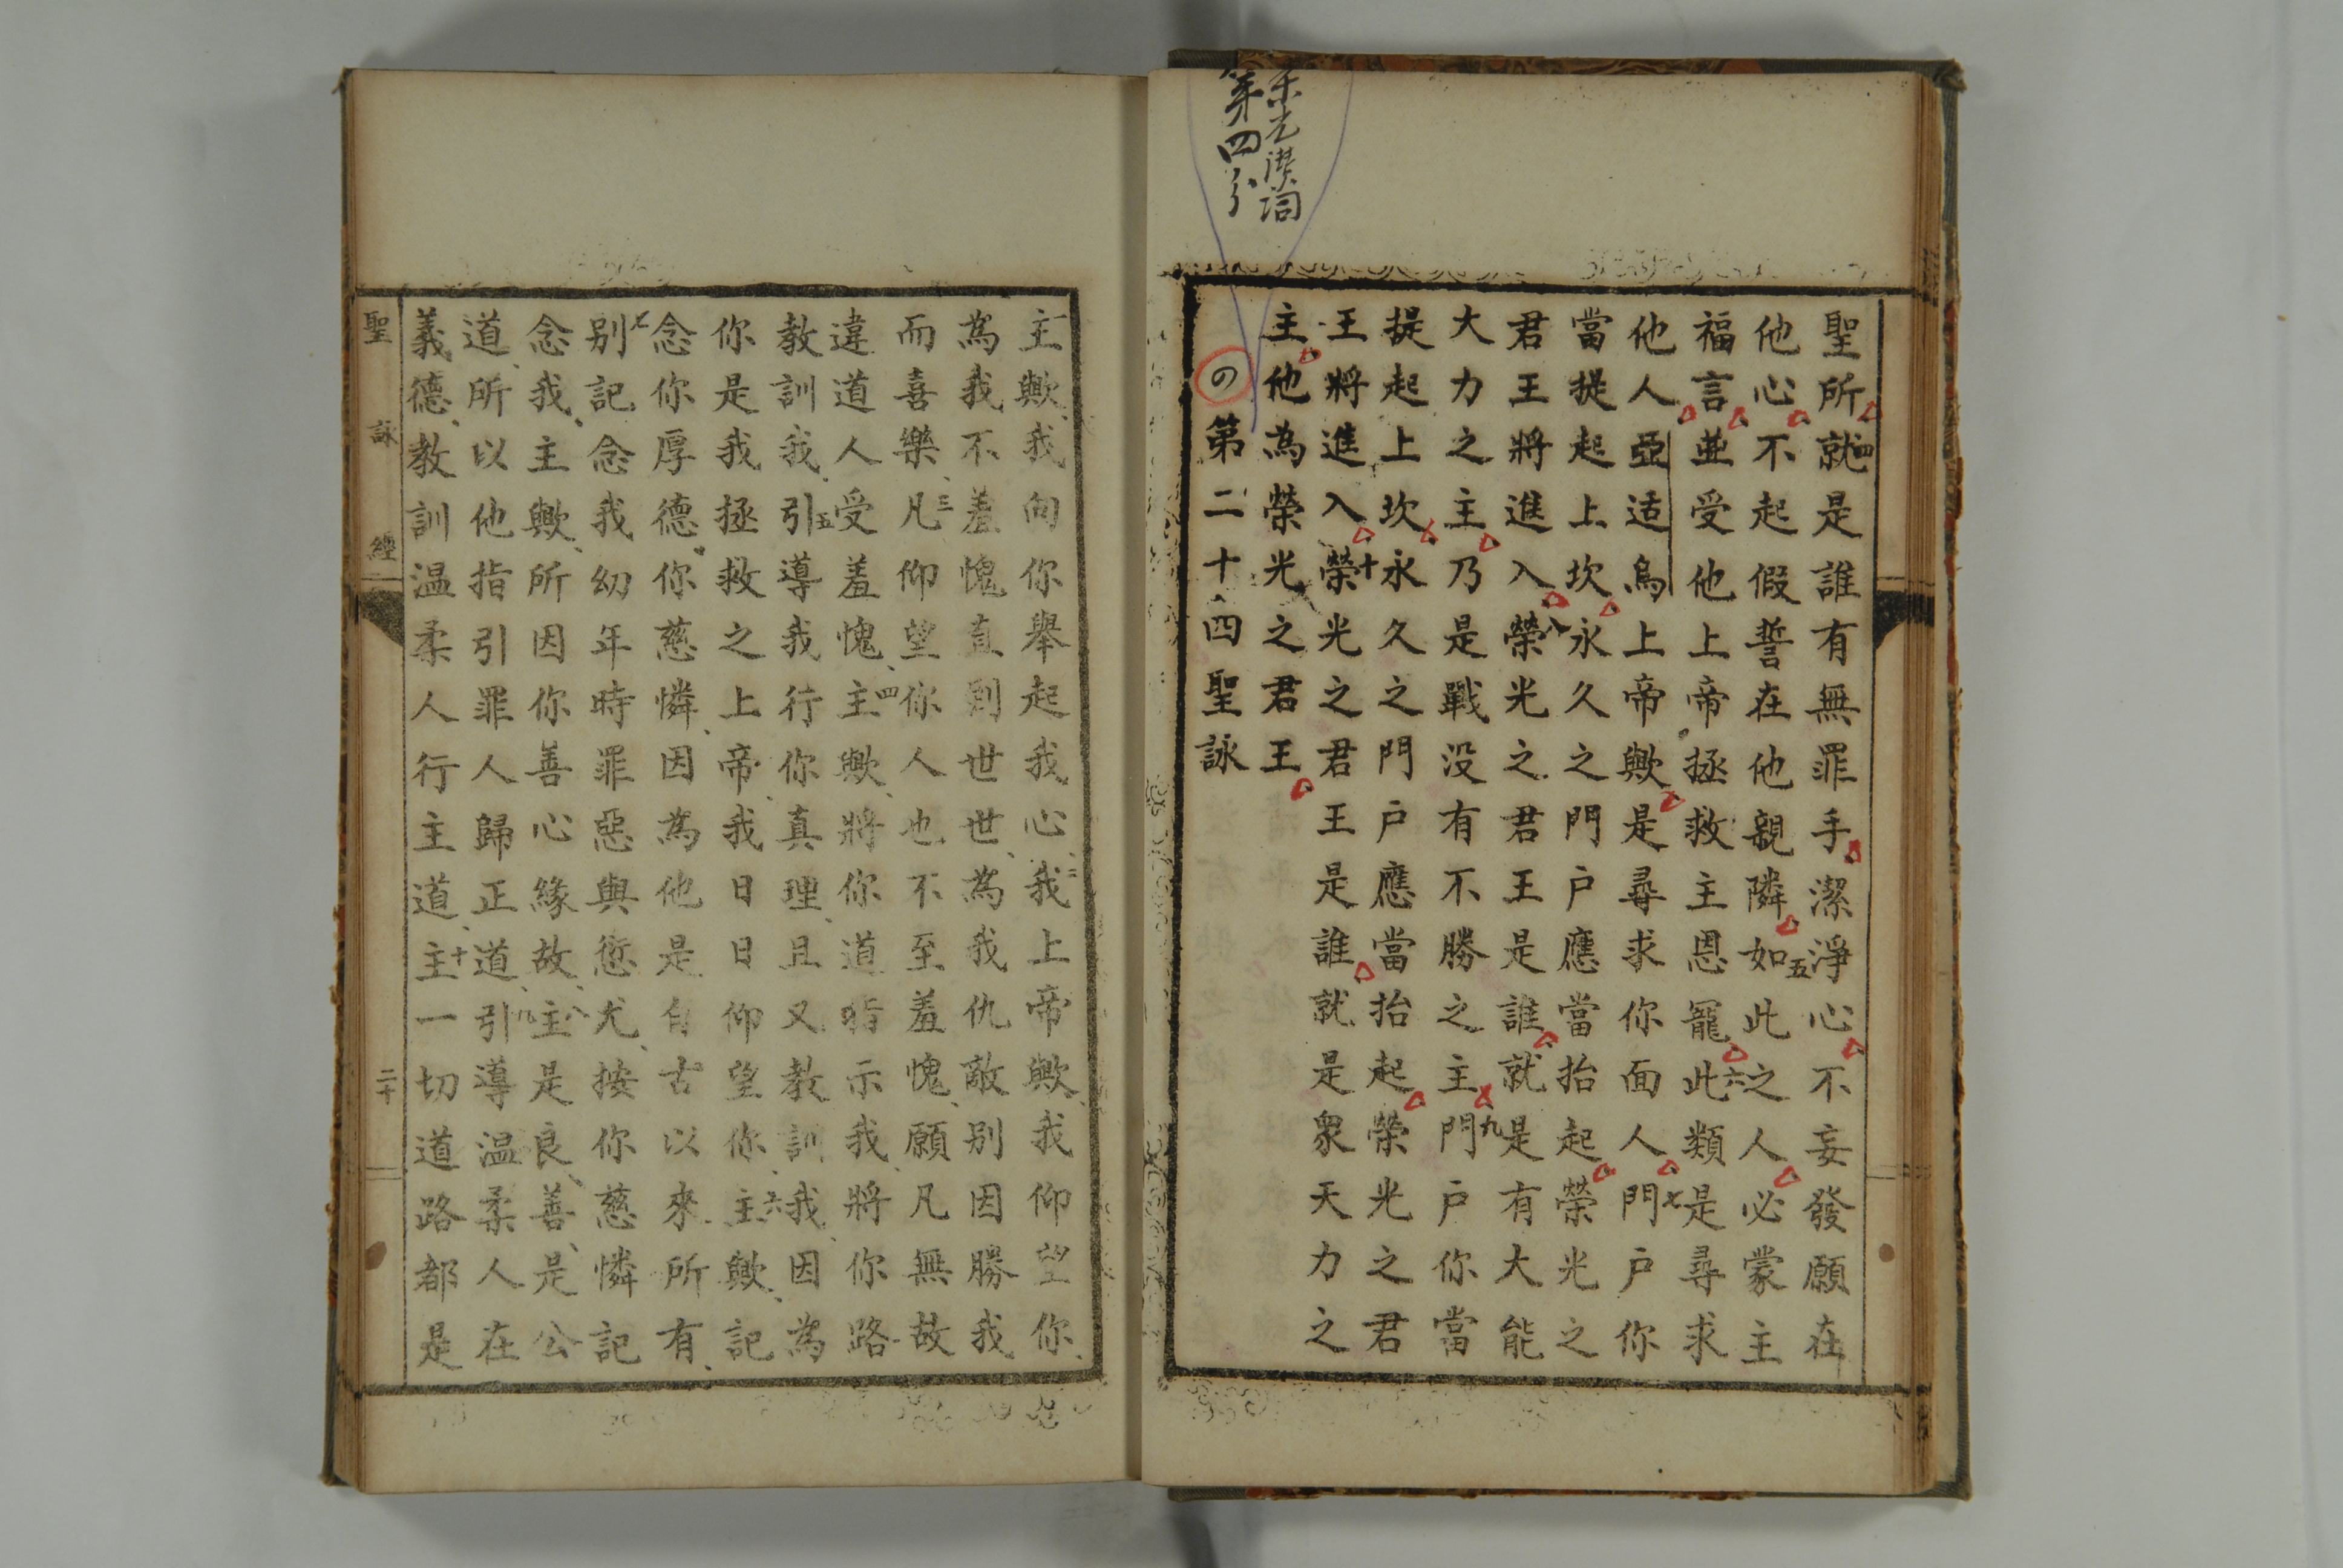 第四分
聖所四就是誰有無罪手潔淨心不妄發願在
他心不起假誓在他親隣五如此之人必蒙主
福言並受他上帝拯救主恩寵六此類是尋求
他人亞适烏上帝歟是尋求你面人七門户你
當提起上坎永久之門户應當抬起榮光之
君王將進入八榮光之君王是誰就是有大能
大力之主乃是戰没有不勝之主九門户你當
提起上坎永久之門户應當抬起榮光之君
王將進入十榮光之君王是誰就是衆天力之
主他為榮光之君王
の第二十四聖詠
主歟、我向你舉起我心、二我上帝歟、我仰望你、
為我不羞愧直到世世、為我仇敵别因勝我
而喜樂、三凡仰望你人也不至羞愧、願凡無故
違道人受羞愧、四主歟、將你道指示我、將你路、
教訓我、五引導我行你真理、且又教訓我、因為
你是我拯救之上帝、我日日仰望你、六主歟、記
念你厚德、你慈憐、因為他是自古以來、所有、
七别記念我幼年時罪惡與愆尤、按你慈憐記
念我、主歟、所因你善心緣故、八主是良善、是公
道、所以他指引罪人歸正道、九引導温柔人在
義德、教訓温柔人行主道、十主一切道路都是
聖詠經
二十